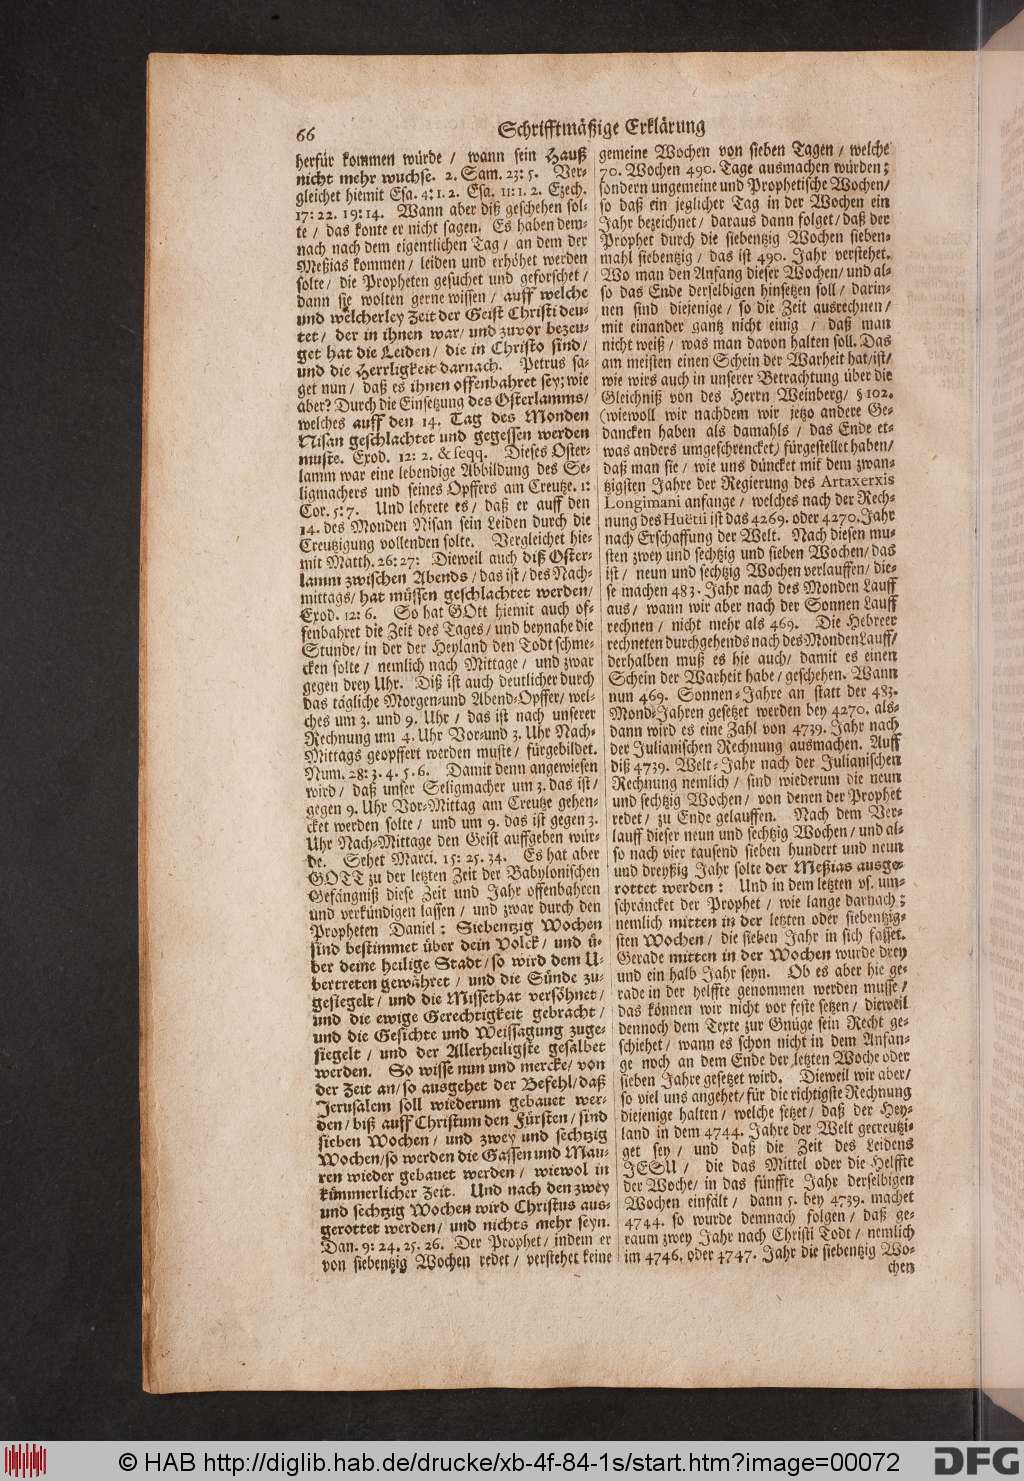 66
Schrifftmäßige Erklärung
herfür kommen würde / wann sein Hauß
nicht mehr wuchse. 2. Sam. 23: 5. Ver-
gleichet hiemit Esa. 4: 1. 2. Esa. 11: 1. 2. Ezech.
17: 22. 19: 14. Wann aber diß geschehen sol-
te / das konte er nicht sagen. Es haben dem-
nach nach dem eigentlichen Tag / an dem der
Meßias kommen / leiden und erhöhet werden
solte / die Propheten gesuchet und geforschet /
dann sie wolten gerne wissen / auff welche
und welcherley Zeit der Geist Christi deu-
tet / der in ihnen war / und zuvor bezeu-
get hat die Leiden / die in Christo sind /
und die Herrligkeit darnach. Petrus sa-
get nun / daß es ihnen offenbahret sey; wie
aber? Durch die Einsetzung des Osterlamms /
welches auff den 14. Tag des Monden
Nisan geschlachtet und gegessen werden
muste. Exod. 12: 2. & seqq. Dieses Oster-
lamm war eine lebendige Abbildung des Se-
ligmachers und seines Opffers am Creutze. 1:
Cor. 5: 7. Und lehrete es / daß er auff den
14. des Monden Nisan sein Leiden durch die
Creutzigung vollenden solte. Vergleichet hie-
mit Matth. 26: 27: Dieweil auch diß Oster-
lamm zwischen Abends / das ist / des Nach-
mittags / hat müssen geschlachtet werden /
Exod. 12: 6. So hat GOtt hiemit auch of-
fenbahret die Zeit des Tages / und beynahe die
Stunde / in der der Heyland den Todt schme-
cken solte / nemlich nach Mittage / und zwar
gegen drey Uhr. Diß ist auch deutlicher durch
das tägliche Morgen-und Abend-Opffer / wel-
ches um 3. und 9. Uhr / das ist nach unserer
Rechnung um 4. Uhr Vor-und 3. Uhr Nach-
Mittags geopffert werden muste / fürgebildet.
Num. 28: 3. 4. 5. 6. Damit denn angewiesen
wird / daß unser Seligmacher um 3. das ist /
gegen 9. Uhr Vor-Mittag am Creutze gehen-
cket werden solte / und um 9. das ist gegen 3.
Uhr Nach-Mittage den Geist auffgeben wür-
de. Sehet Marci. 15: 25. 34. Es hat aber
GOTT zu der letzten Zeit der Babylonischen
Gefängniß diese Zeit und Jahr offenbahren
und verkündigen lassen / und zwar durch den
Propheten Daniel: Siebentzig Wochen
sind bestimmet über dein Volck / und ü-
ber deine heilige Stadt / so wird dem U-
bertreten gewähret / und die Sünde zu-
gesiegelt / und die Missethat versöhnet /
und die ewige Gerechtigkeit gebracht /
und die Gesichte und Weissagung zuge-
siegelt / und der Allerheiligste gesalbet
werden. So wisse nun und mercke / von
der Zeit an / so ausgehet der Befehl / daß
Jerusalem soll wiederum gebauet wer-
den / biß auff Christum den Fürsten / sind
sieben Wochen / und zwey und sechtzig
Wochen / so werden die Gassen und Mau-
ren wieder gebauet werden / wiewol in
kümmerlicher Zeit. Und nach den zwey
und sechtzig Wochen wird Christus aus-
gerottet werden / und nichts mehr seyn.
Dan. 9: 24. 25. 26. Der Prophet / indem er
von siebentzig Wochen redet / verstehet keine
gemeine Wochen von sieben Tagen / welche
70. Wochen 490. Tage ausmachen würden;
sondern ungemeine und Prophetische Wochen /
so daß ein jeglicher Tag in der Wochen ein
Jahr bezeichnet / daraus dann folget / daß der
Prophet durch die siebentzig Wochen sieben-
mahl siebentzig / das ist 490. Jahr verstehet.
Wo man den Anfang dieser Wochen / und al-
so das Ende derselbigen hinsetzen soll / darin-
nen sind diejenige / so die Zeit ausrechnen /
mit einander gantz nicht einig / daß man
nicht weiß / was man davon halten soll. Das
am meisten einen Schein der Warheit hat / ist /
wie wirs auch in unserer Betrachtung über die
Gleichniß von des Herrn Weinberg / § 102.
(wiewoll wir nachdem wir jetzo andere Ge-
dancken haben als damahls / das Ende et-
was anders umgeschrencket) fürgestellet haben /
daß man sie / wie uns düncket mit dem zwan-
tzigsten Jahre der Regierung des Artaxerxis
Longimani anfange / welches nach der Rech-
nung des Huëtii ist das 4269. oder 4270. Jahr
nach Erschaffung der Welt. Nach diesen mu-
sten zwey und sechtzig und sieben Wochen / das
ist / neun und sechtzig Wochen verlauffen / die-
se machen 483. Jahr nach des Monden Lauff
aus / wann wir aber nach der Sonnen Lauff
rechnen / nicht mehr als 469. Die Hebreer
rechneten durchgehends nach des Monden Lauff /
derhalben muß es hie auch / damit es einen
Schein der Warheit habe / geschehen. Wann
nun 469. Sonnen-Jahre an statt der 483.
Mond-Jahren gesetzet werden bey 4270. als-
dann wird es eine Zahl von 4739. Jahr nach
der Julianischen Rechnung ausmachen. Auff
diß 4739. Welt-Jahr nach der Julianischen
Rechnung nemlich / sind wiederum die neun
und sechtzig Wochen / von denen der Prophet
redet / zu Ende gelauffen. Nach dem Ver-
lauff dieser neun und sechtzig Wochen / und al-
so nach vier tausend sieben hundert und neun
und dreyßig Jahr solte der Meßias ausge-
rottet werden: Und in dem letzten vs. um-
schräncket der Prophet / wie lange darnach;
nemlich mitten in der letzten oder siebentzig-
sten Wochen / die sieben Jahr in sich fasset.
Gerade mitten in der Wochen wurde drey
und ein halb Jahr seyn. Ob es aber hie ge-
rade in der helffte genommen werden musse /
das können wir nicht vor feste setzen / dieweil
dennoch dem Texte zur Gnüge sein Recht ge-
schiehet / wann es schon nicht in dem Anfan-
ge noch an dem Ende der letzten Woche oder
sieben Jahre gesetzet wird. Dieweil wir aber /
so viel uns angehet / für die richtigste Rechnung
diejenige halten / welche setzet / daß der Hey-
land in dem 4744. Jahre der Welt gecreutzi-
get sey / und daß die Zeit des Leidens
JESU / die das Mittel oder die Helffte
der Woche / in das fünffte Jahr derselbigen
Wochen einfält / dann 5. bey 4739. machet
4744. so wurde demnach folgen / daß ge-
raum zwey Jahr nach Christi Todt / nemlich
im 4746. oder 4747. Jahr die siebentzig Wo-
chen
© HAB http://diglib.hab.de/drucke/xb-4f-84-1s/start.htm?image=00072
DFG